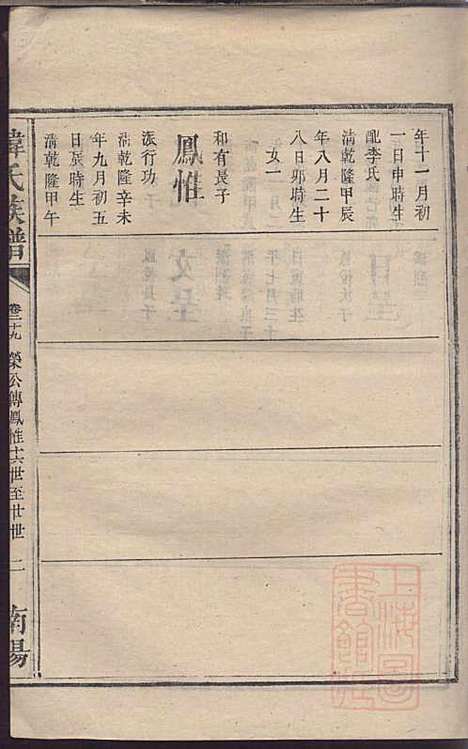 年十一月初
一日申時生
配李氏
清乾隆甲辰
年八月二十
八日卯時生
女一
和有長子
鳳惟
派行功
清乾隆辛未
年九月初五
日辰時生
清乾隆甲午
韓氏族譜
卷二十九
榮公傳鳳惟十六世至廿世
二
南陽
上海圖書館藏